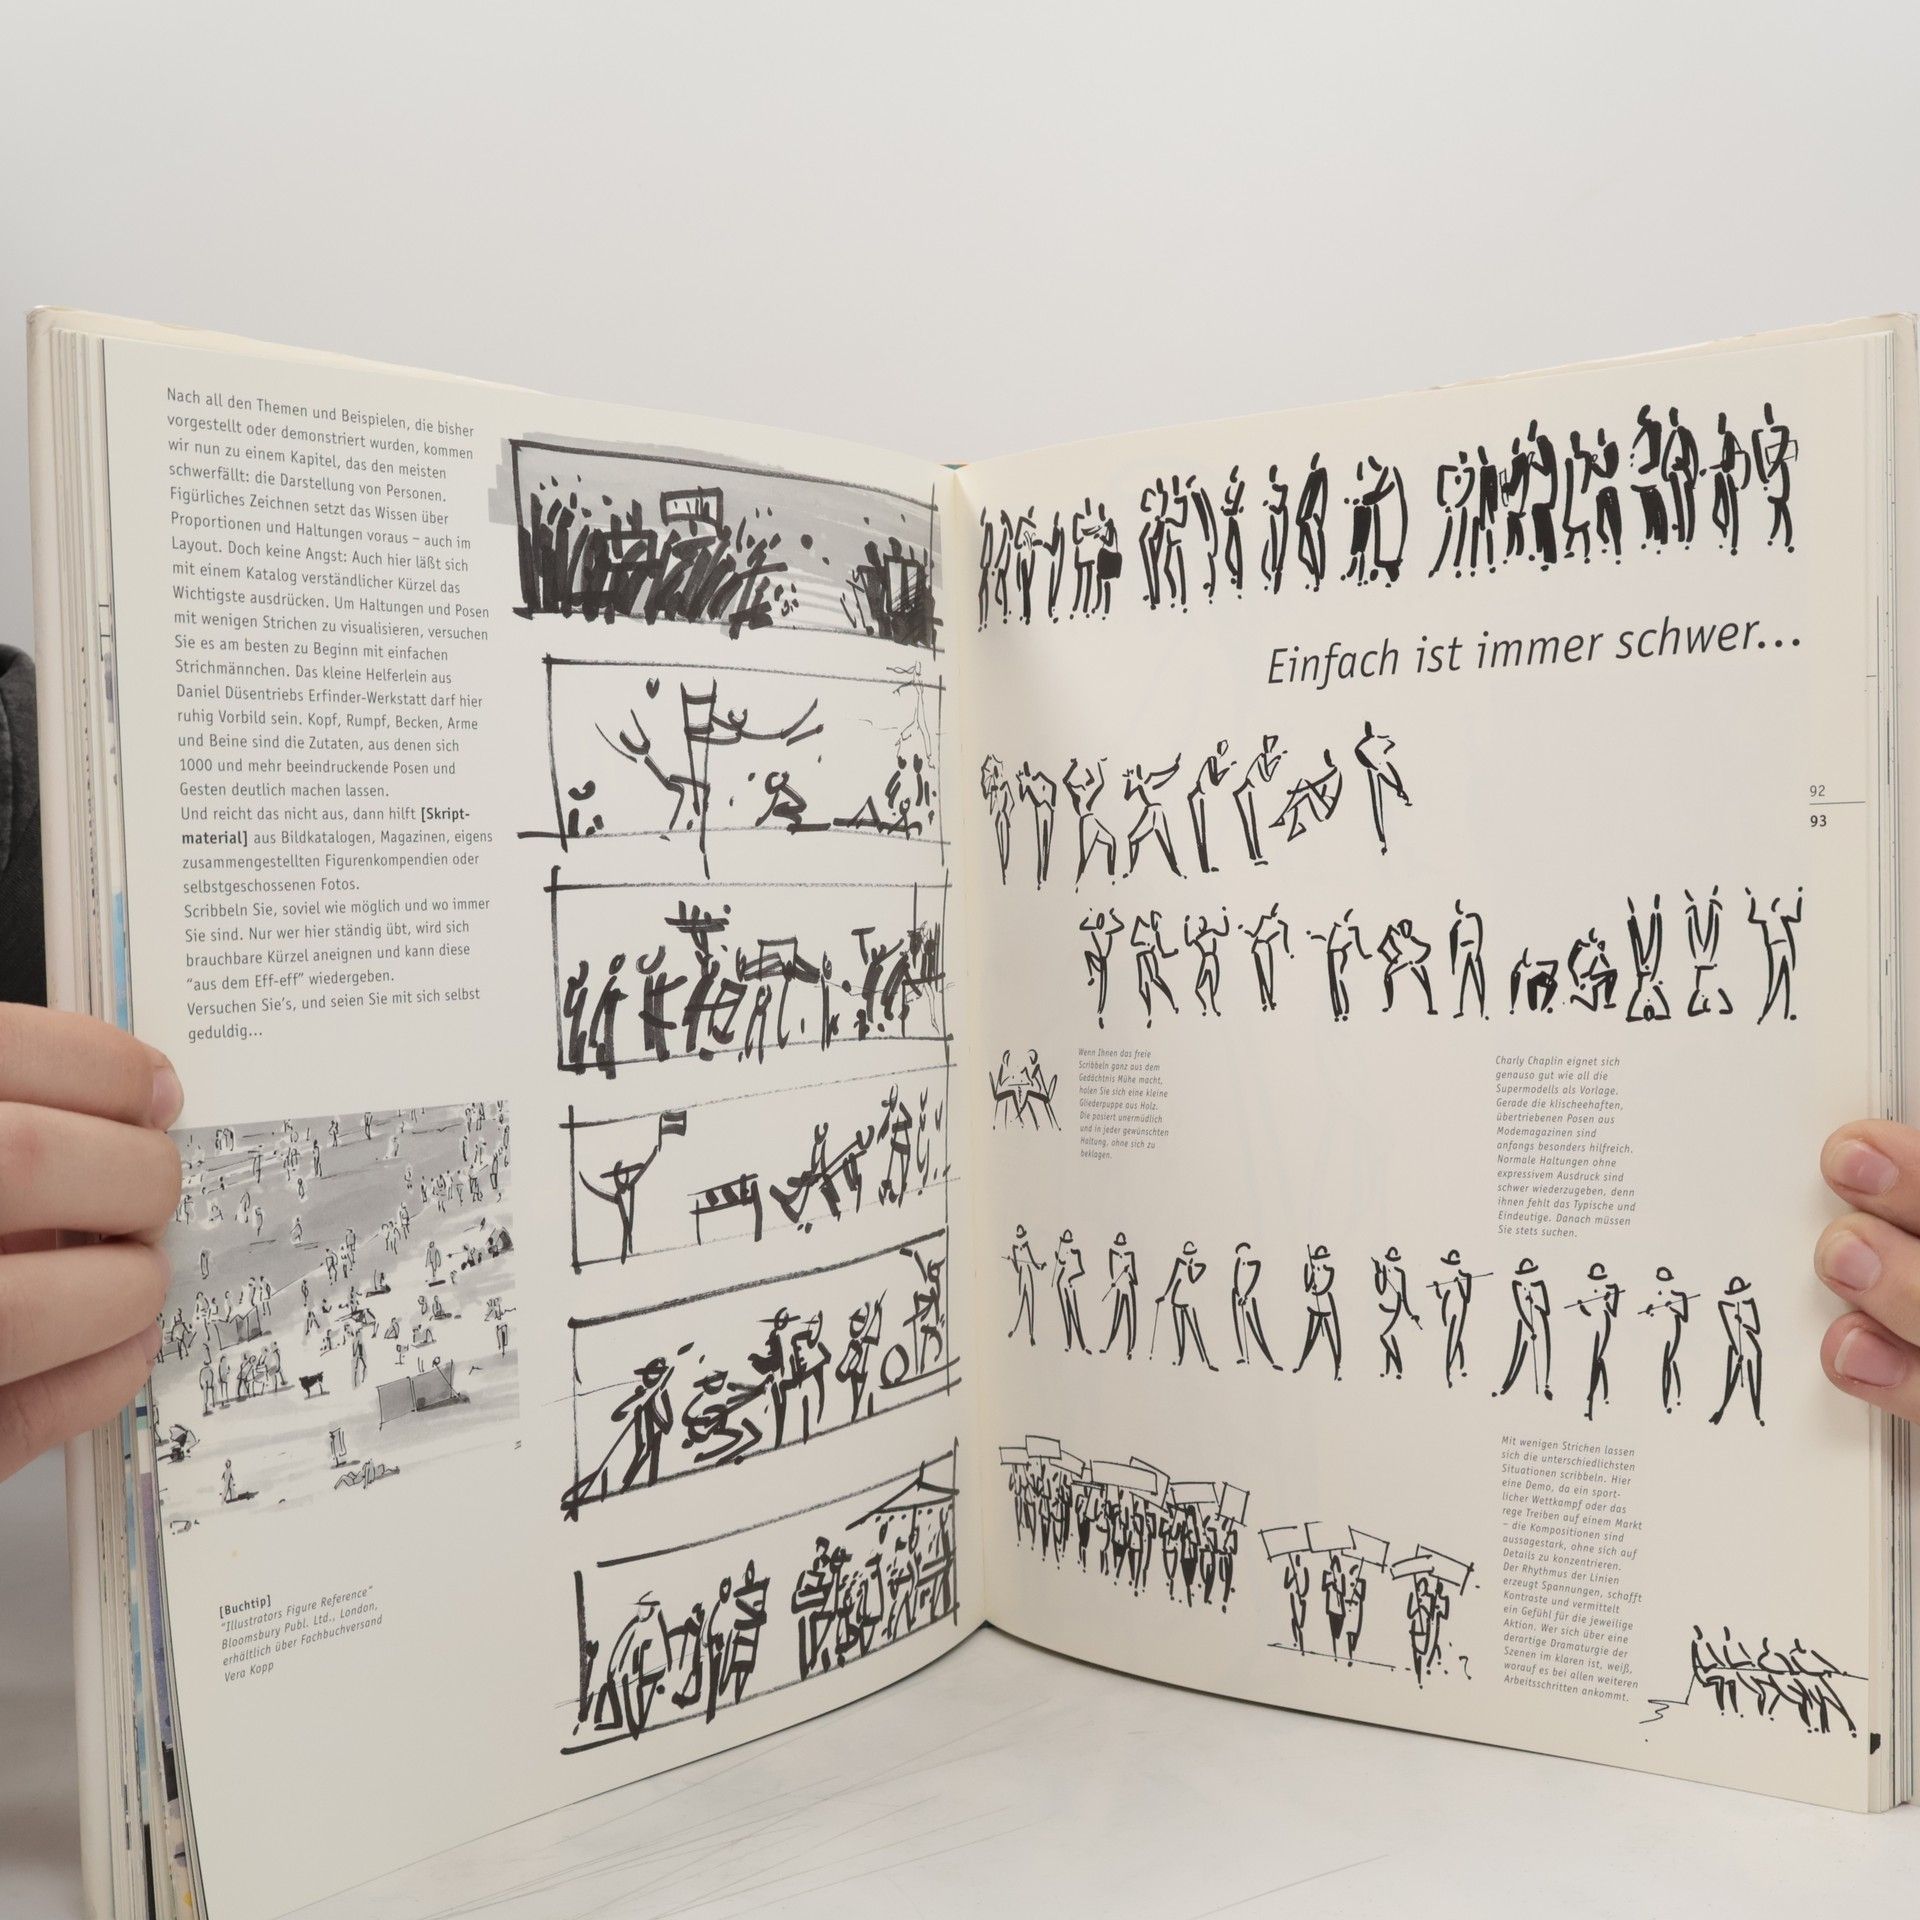 Nach all den Themen und Beispielen, die bisher
vorgestellt oder demonstriert wurden, kommen
wir nun zu einem Kapitel, das den meisten
schwerfällt: die Darstellung von Personen.
Figürliches Zeichnen setzt das Wissen über
Proportionen und Haltungen voraus – auch im
Layout. Doch keine Angst: Auch hier läßt sich
mit einem Katalog verständlicher Kürzel das
Wichtigste ausdrücken. Um Haltungen und Posen
mit wenigen Strichen zu visualisieren, versuchen
Sie es am besten zu Beginn mit einfachen
Strichmännchen. Das kleine Helferlein aus
Daniel Düsentriebs Erfinder-Werkstatt darf hier
ruhig Vorbild sein. Kopf, Rumpf, Becken, Arme
und Beine sind die Zutaten, aus denen sich
1000 und mehr beeindruckende Posen und
Gesten deutlich machen lassen.
Und reicht das nicht aus, dann hilft [Skript-
material] aus Bildkatalogen, Magazinen, eigens
zusammengestellten Figurenkompendien oder
selbstgeschossenen Fotos.
Scribbeln Sie, soviel wie möglich und wo immer
Sie sind. Nur wer hier ständig übt, wird sich
brauchbare Kürzel aneignen und kann diese
“aus dem Eff-eff” wiedergeben.
Versuchen Sie's, und seien Sie mit sich selbst
geduldig...
[Buchtip]
“Illustrators Figure Reference”
Bloomsbury Publ. Ltd., London,
erhältlich über Fachbuchversand
Vera Kopp
Einfach ist immer schwer...
92
93
Wenn Ihnen das freie
Scribbeln ganz aus dem
Gedächtnis Mühe macht,
holen Sie sich eine kleine
Gliederpuppe aus Holz.
Die posiert unermüdlich
und in jeder gewünschten
Haltung, ohne sich zu
beklagen.
Charly Chaplin eignet sich
genauso gut wie all die
Supermodells als Vorlage.
Gerade die klischeehaften,
übertriebenen Posen aus
Modemagazinen sind
anfangs besonders hilfreich.
Normale Haltungen ohne
expressivem Ausdruck sind
schwer wiederzugeben, denn
ihnen fehlt das Typische und
Eindeutige. Danach müssen
Sie stets suchen.
Mit wenigen Strichen lassen
sich die unterschiedlichsten
Situationen scribbeln. Hier
eine Demo, da ein sport-
licher Wettkampf oder das
rege Treiben auf einem Markt
– die Kompositionen sind
aussagestark, ohne sich auf
Details zu konzentrieren.
Der Rhythmus der Linien
erzeugt Spannungen, schafft
Kontraste und vermittelt
ein Gefühl für die jeweilige
Aktion. Wer sich über eine
derartige Dramaturgie der
Szenen im klaren ist, weiß,
worauf es bei allen weiteren
Arbeitsschritten ankommt.